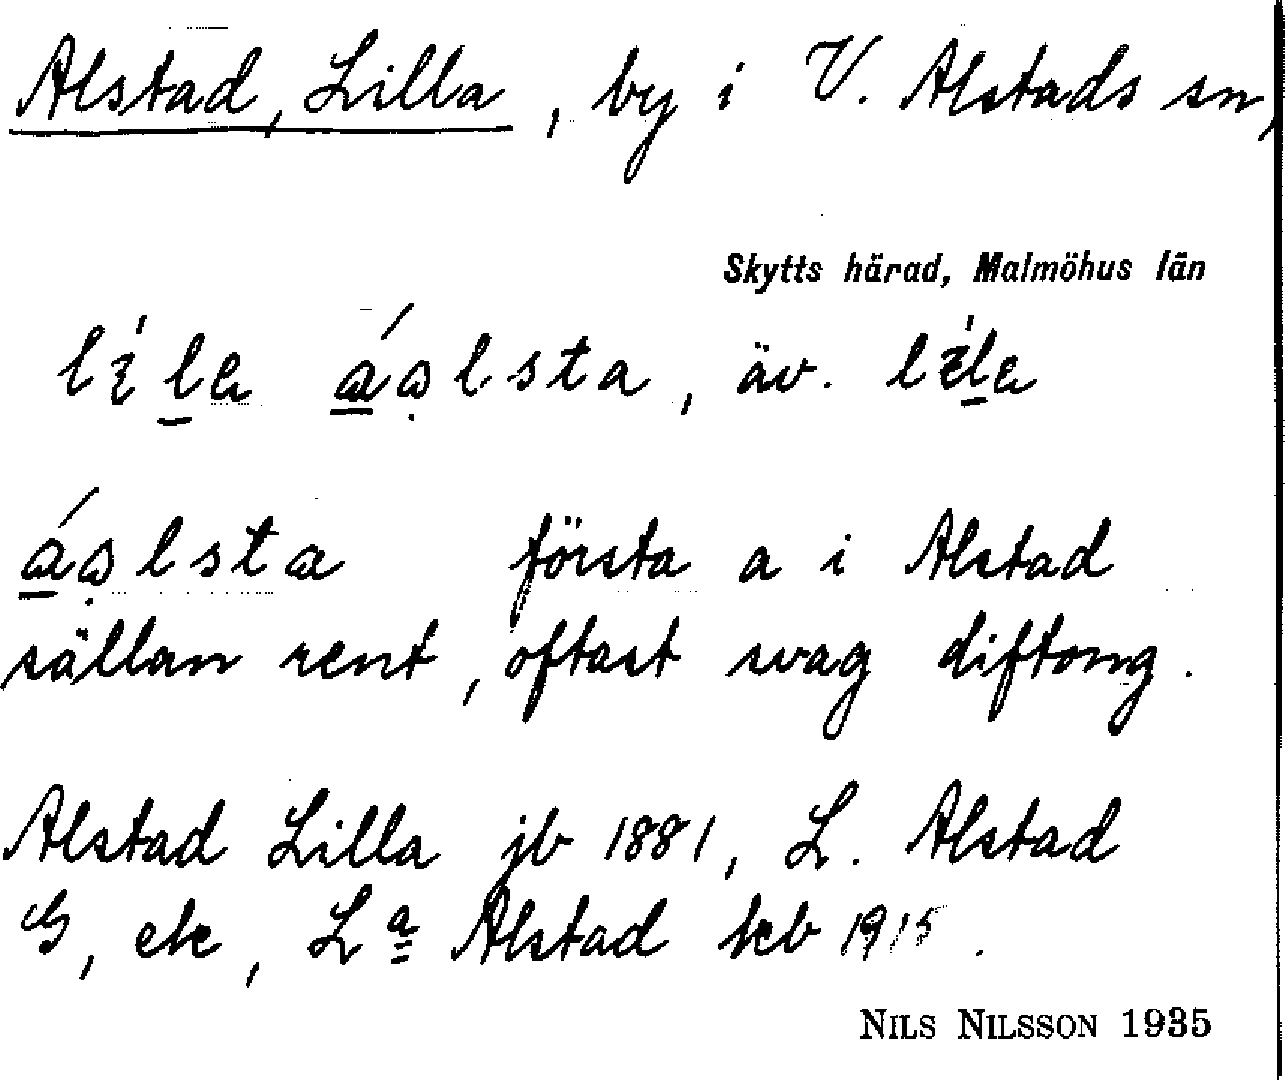 Alstad, Lilla, by i V. Alstads sn,
Skytts härad, Malmöhus län
äv.
första a i Alstad
sällan rent, oftast svag diftong.
Alstad Lilla jb 1881, L. Alstad
G, ek, L<sup>a</sup> Alstad tkb 1915.
NILS NILSSON 1935